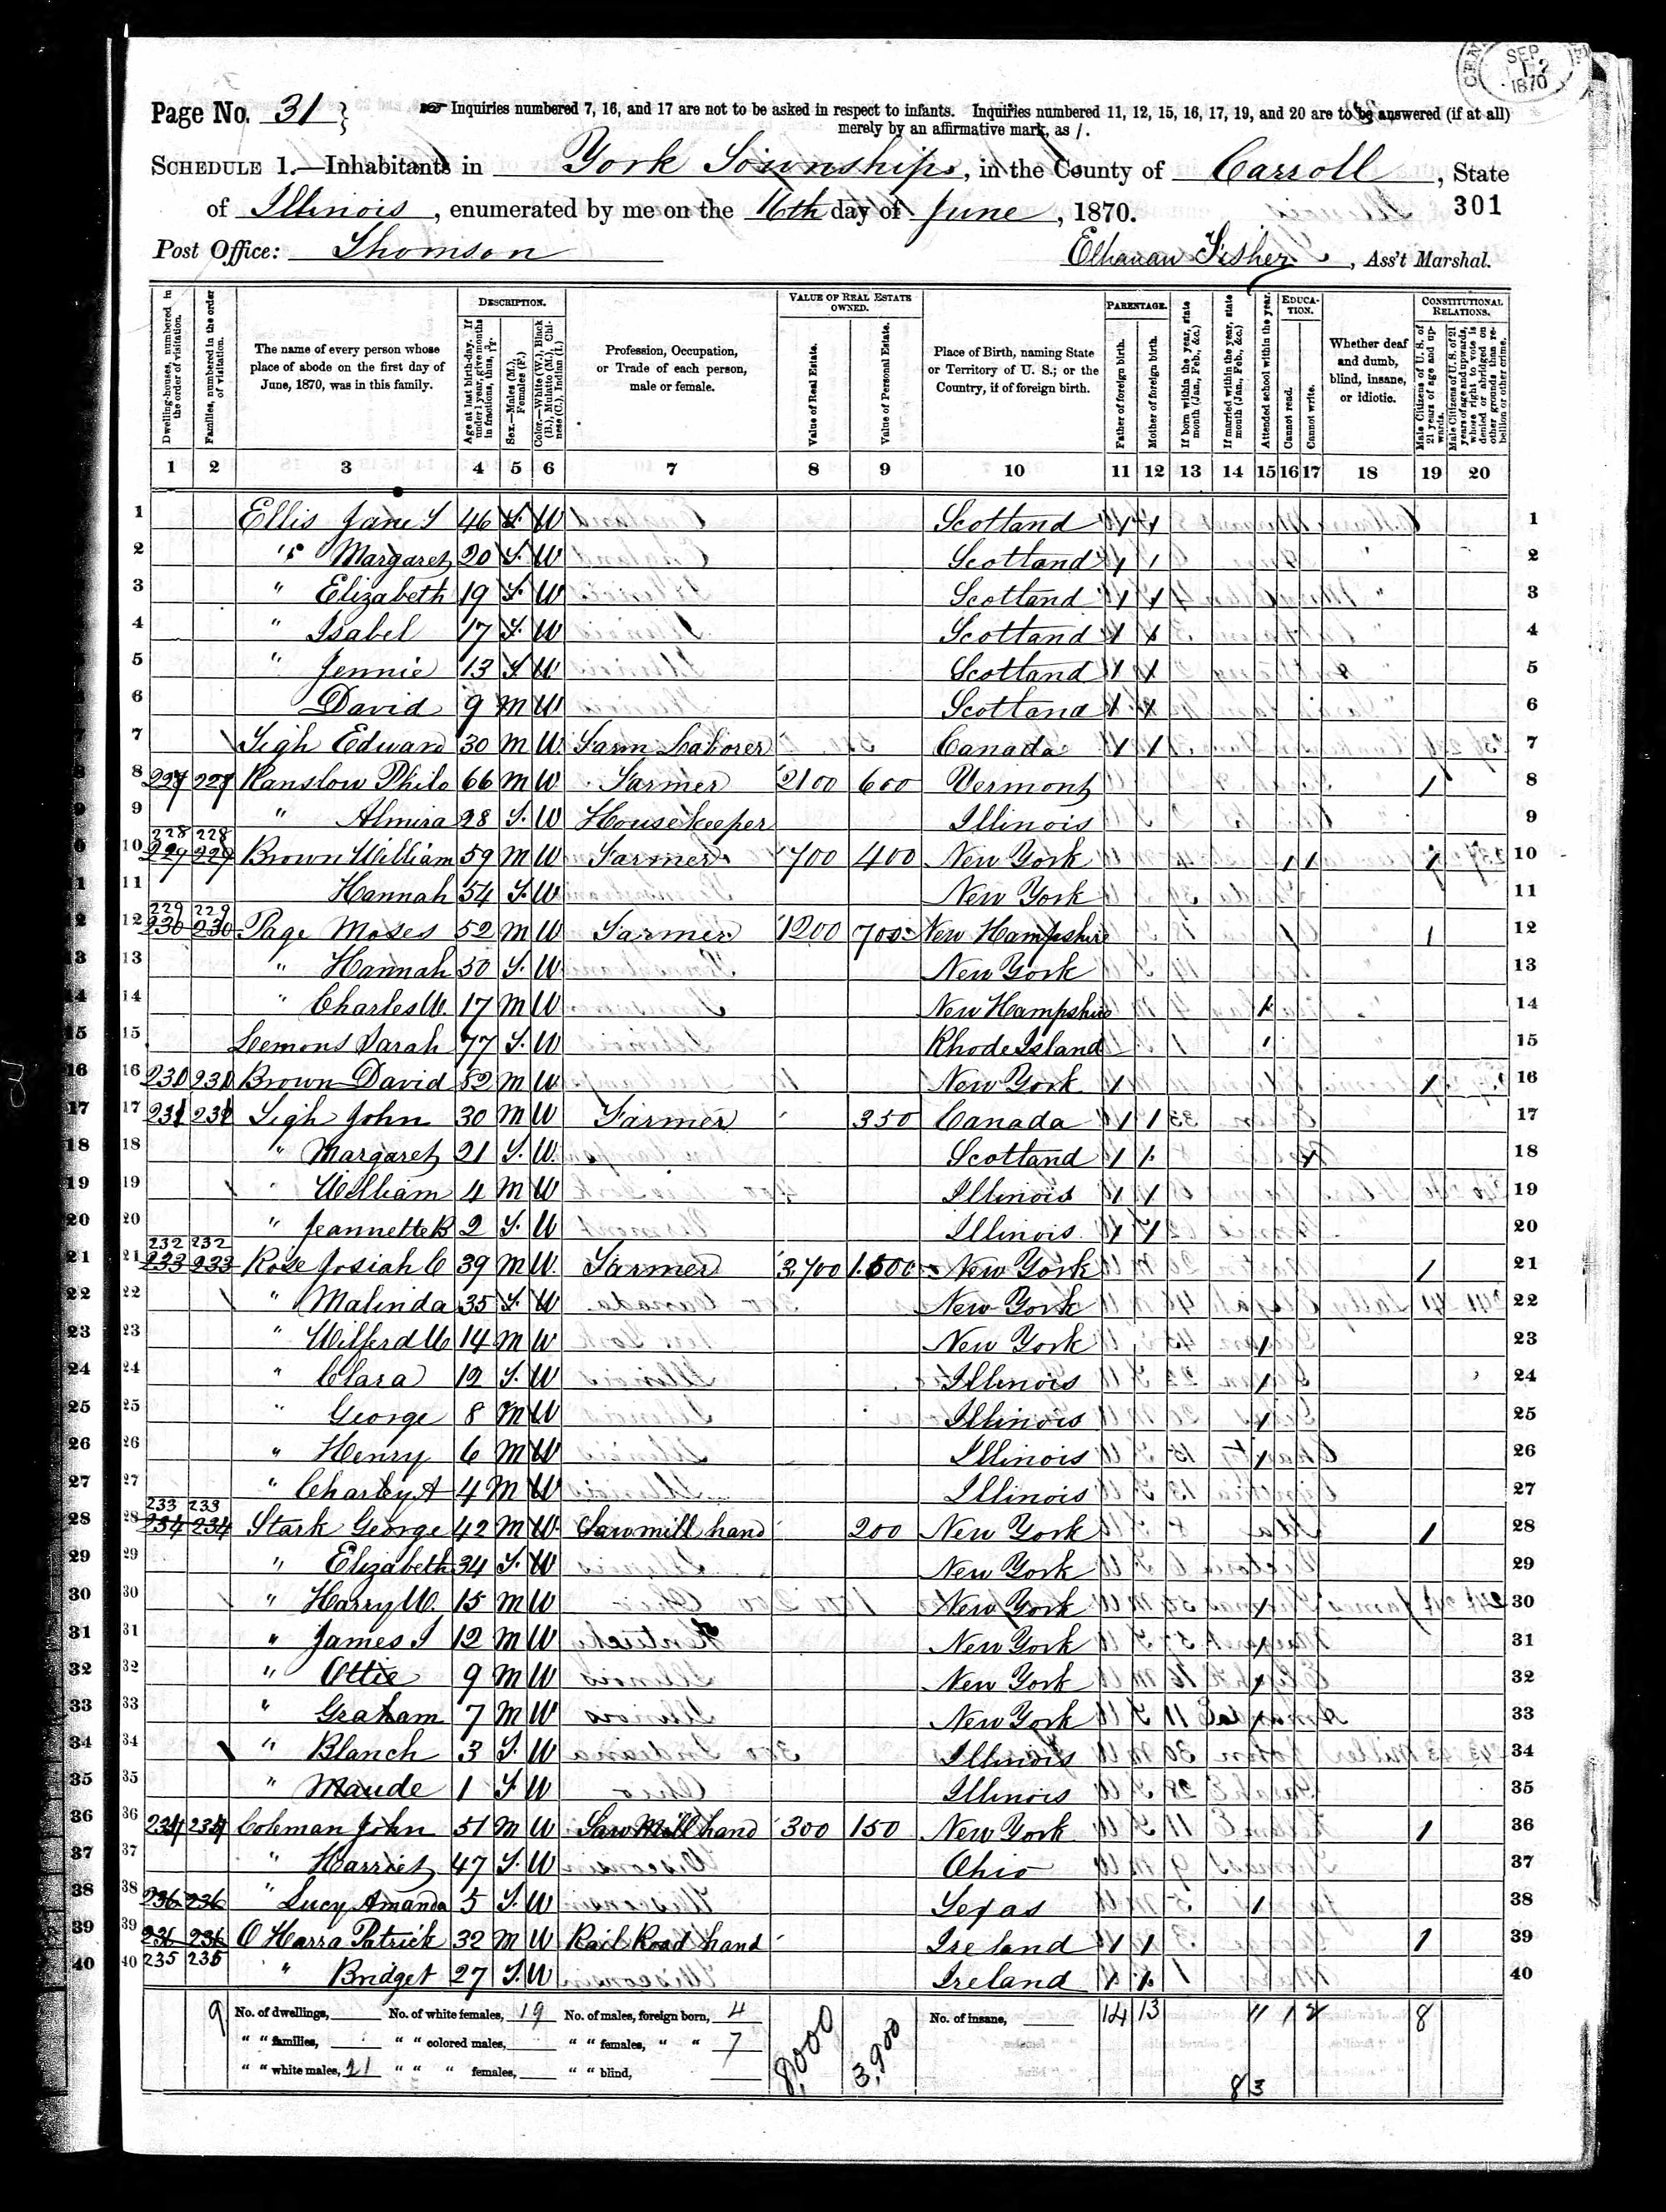 CEN SEP 12 1870
Page No. 31
Inquiries numbered 7, 16, and 17 are not to be asked in respect to infants. Inquiries numbered 11, 12, 15, 16, 17, 19, and 20 are to be answered (if at all)
merely by an affirmative mark, as /.
SCHEDULE 1.—Inhabitants in York Township, in the County of Carroll, State
of Illinois, enumerated by me on the 16th day of June, 1870.
301
Post Office: Thomson
Elhanan Fisher, Ass't Marshal.
Dwelling-houses, numbered in the order of visitation.
Families, numbered in the order of visitation.
The name of every person whose place of abode on the first day of June, 1870, was in this family.
DESCRIPTION.
Age at last birth-day. If under 1 year, give months in fractions, thus, 3/12.
Sex.—Males (M.), Females (F.)
Color.—White (W.), Black (B.), Mulatto (M.), Chinese (C.), Indian (I.)
Profession, Occupation, or Trade of each person, male or female.
VALUE OF REAL ESTATE OWNED.
Value of Real Estate.
Value of Personal Estate.
Place of Birth, naming State or Territory of U. S.; or the Country, if of foreign birth.
PARENTAGE.
Father of foreign birth.
Mother of foreign birth.
If born within the year, state month (Jan., Feb., &c.)
If married within the year, state month (Jan., Feb., &c.)
Attended school within the year.
EDUCATION.
Cannot read.
Cannot write.
Whether deaf and dumb, blind, insane, or idiotic.
CONSTITUTIONAL RELATIONS.
Male Citizens of U. S. of 21 years of age and upwards.
Male Citizens of U. S. of 21 years of age and upwards, whose right to vote is denied or abridged on other grounds than rebellion or other crime.
1 2 3 4 5 6 7 8 9 10 11 12 13 14 15 16 17 18 19 20
1 Ellis Jane S 46 F. W Scotland 1 1 1
2 " Margaret 20 F. W Scotland 1 1 2
3 " Elizabeth 19 F. W Scotland 1 1 3
4 " Isabel 17 F. W Scotland 1 1 4
5 " Jennie 13 F W Scotland 1 1 5
6 David 9 M W Scotland 1 1 6
7 Ligh Edward 30 M W Farm Laborer Canada 1 1 7
8 227 227 Ranslow Philo 66 M W Farmer 2100 600 Vermont 1 8
9 " Almira 28 F. W Housekeeper Illinois 9
228 228
10 229 229 Brown William 59 M W Farmer 700 400 New York 1 1 1 10
11 Hannah 54 F. W New York 11
229 229
12 230 230 Page Moses 52 M W Farmer 1200 700 New Hampshire 1 12
13 " Hannah 50 F. W New York 13
14 " Charles W. 17 M W New Hampshire 1 14
15 Lemons Sarah 77 F. W Rhode Island 15
16 230 230 Brown David 52 M W New York 1 1 16
17 231 231 Ligh John 30 M W Farmer 350 Canada 1 1 17
18 " Margaret 21 F. W. Scotland 1 1 1 18
19 " William 4 M W Illinois 1 1 19
20 " Jeannette B 2 F. W Illinois 1 1 20
232 232
21 233 233 Rose Josiah C 39 M W. Farmer 3,700 1,500 New York 1 21
22 " Malinda 35 F. W New York 22
23 " Wilferd W 14 M W New York 1 23
24 " Clara 12 F. W Illinois 1 24
25 " George 8 M W Illinois 1 25
26 " Henry 6 M W Illinois 1 26
27 " Charley A 4 M W Illinois 27
233 233
28 234 234 Stark George 42 M W. Sawmill hand 200 New York 1 28
29 " Elizabeth 34 F. W New York 29
30 " Harry W. 15 M W New York 1 30
31 " James I 12 M W New York 1 31
32 " Ottie 9 M W New York 1 32
33 " Graham 7 M W New York 1 33
34 " Blanch 3 F. W Illinois 34
35 " Maude 1 F W Illinois 35
36 234 234 Coleman John 51 M W Saw Mill hand 300 150 New York 1 36
37 " Harriet 47 F. W Ohio 37
38 236 236 " Lucy Amanda 5 F. W Texas 1 38
39 236 236 O Harra Patrick 32 M W Rail Road hand Ireland 1 1 1 39
40 235 235 " Bridget 27 F. W Ireland 1 1 40
9 No. of dwellings, No. of white females, 19 No. of males, foreign born, 4 8,000 3,900 No. of insane, 14 13 11 1 2 8
" " families, " " colored males, " " females, " " 7
" " white males, 21 " " " females, " " blind,
83